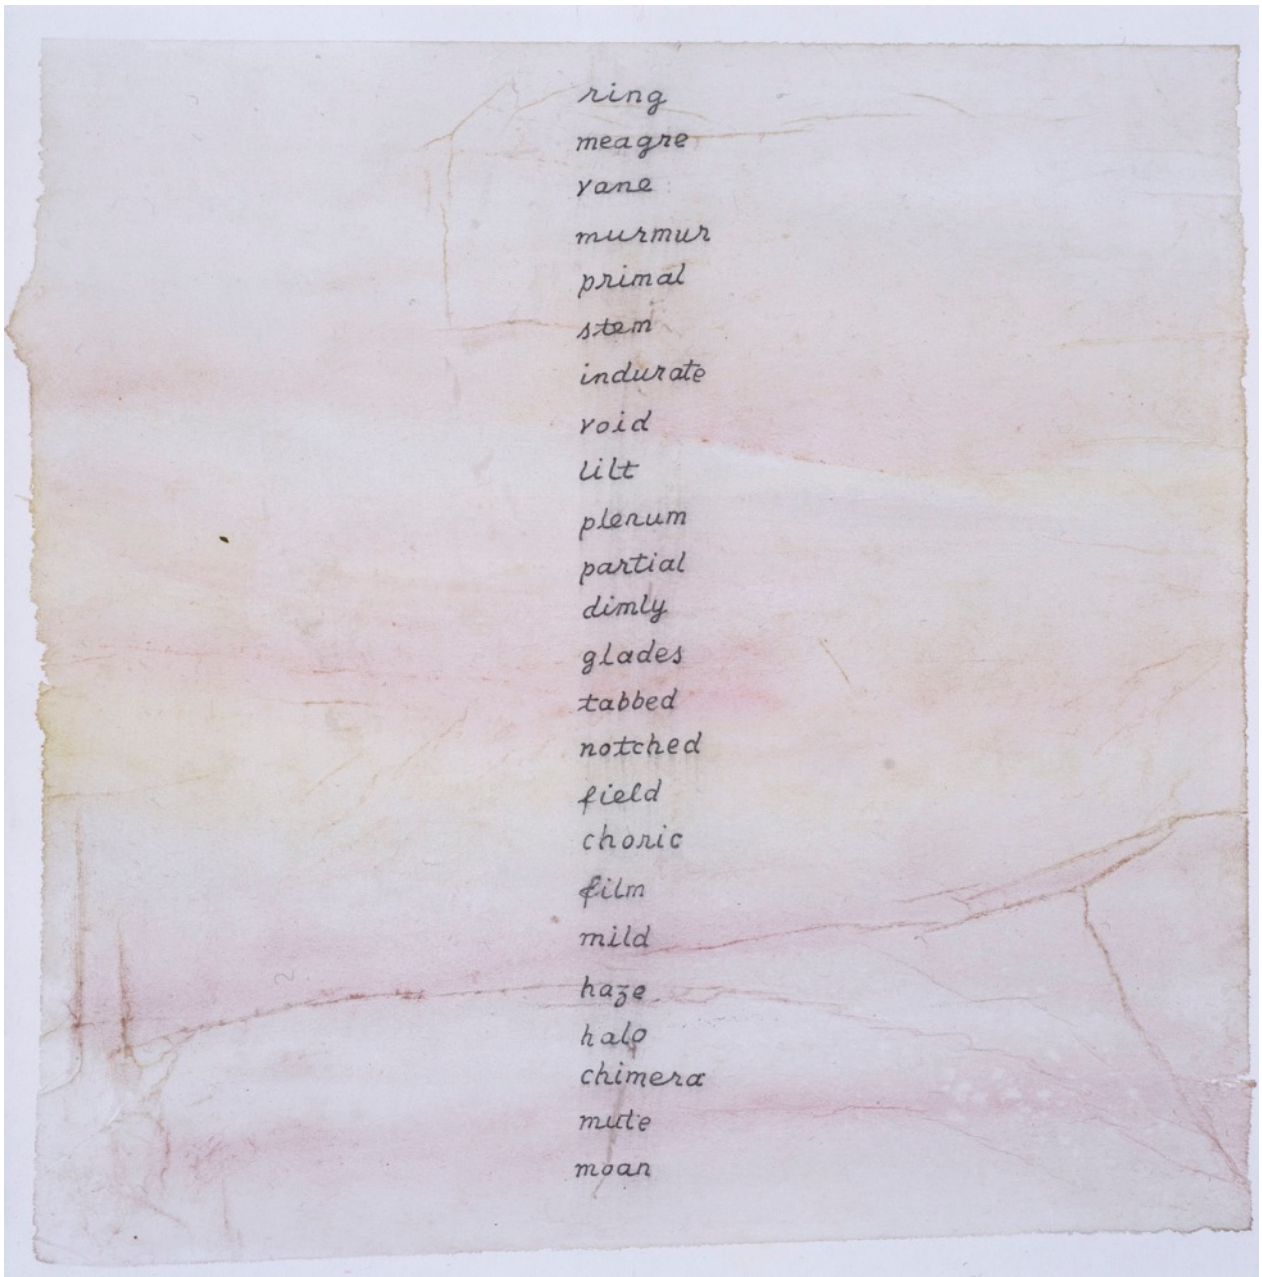 ring
meagre
vane
murmur
primal
stem
indurate
void
lilt
plenum
partial
dimly
glades
tabbed
notched
field
choric
film
mild
haze
halo
chimera
mute
moan